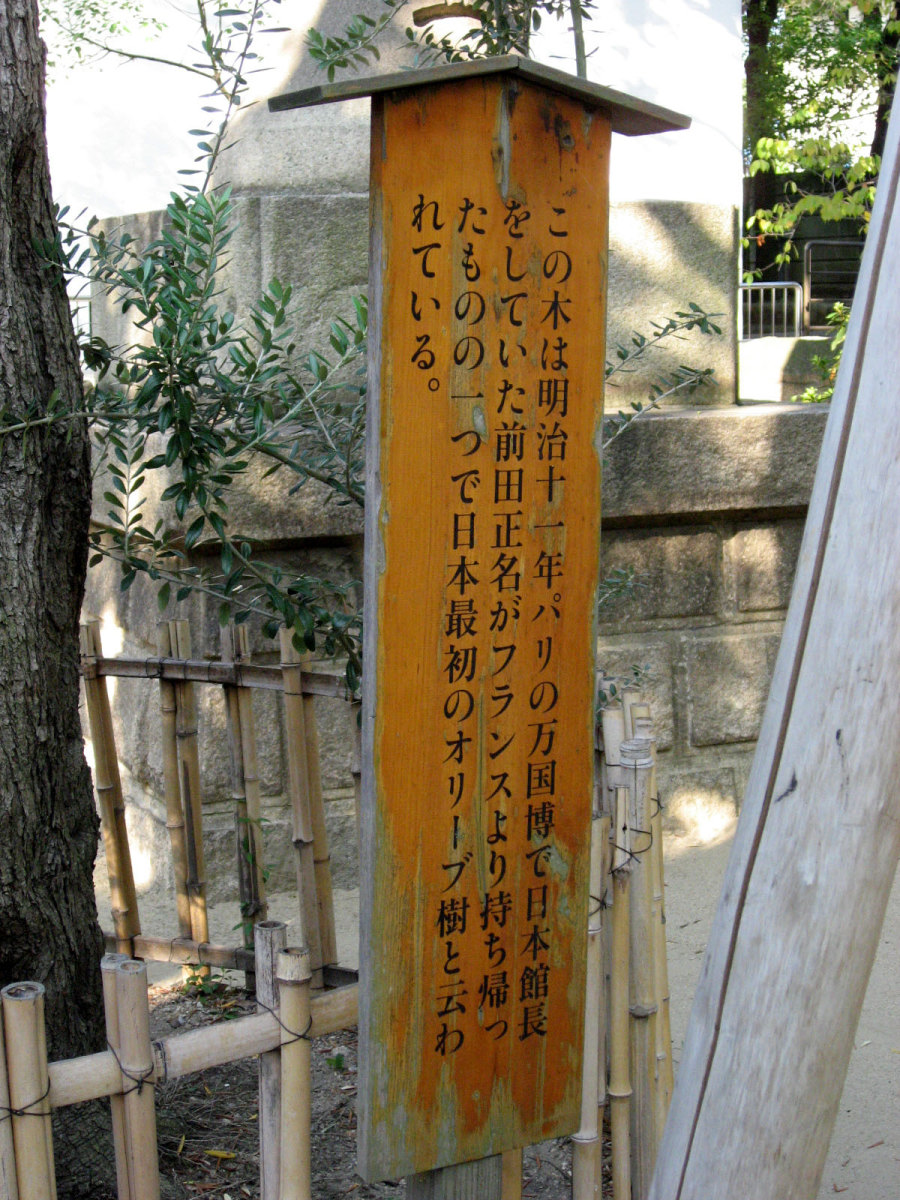 この木は明治十一年パリの万国博で日本館長
をしていた前田正名がフランスより持ち帰っ
たものの一つで日本最初のオリーブ樹と云わ
れている。